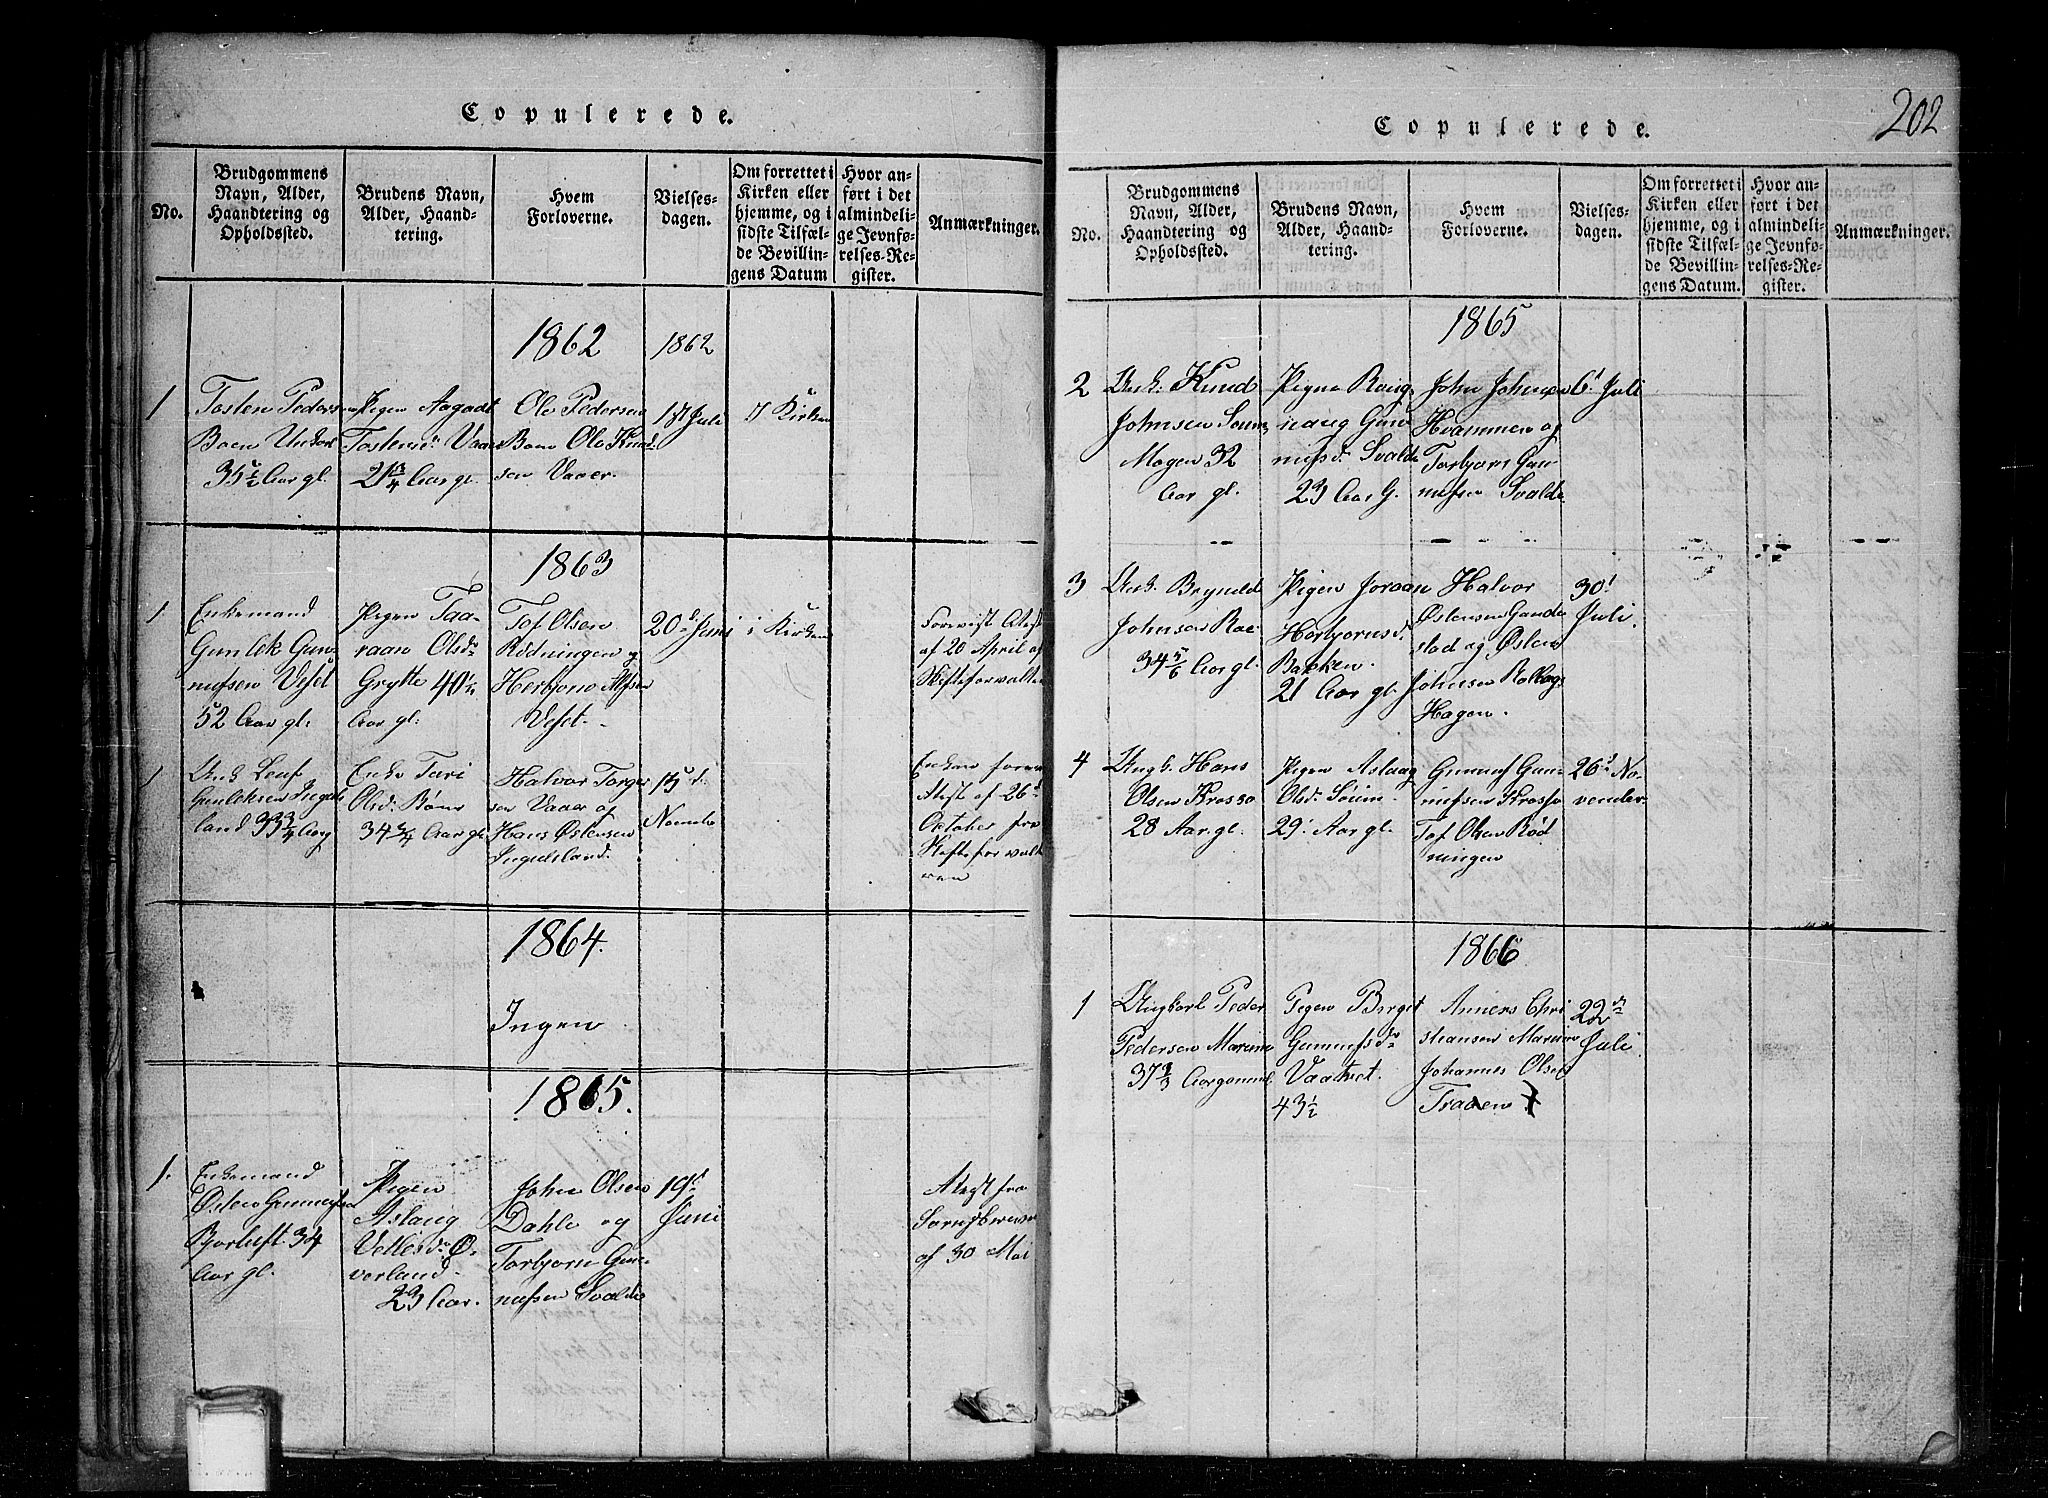 Copulerede.
No.
Brudgommens
Navn, Alder,
Haandtering og
Opholdssted.
Brudens Navn,
Alder, Haand-
tering.
Hvem
Forloverne.
Vielses-
dagen.
Om forrettet i
Kirken eller
hjemme, og i
sidste Tilfæl-
de Bevillin-
gens Datum
Hvor an-
ført i det
almindeli-
ge Jevnfø-
relses-Re-
gister.
Anmærkninger.
1862
1862
1
Tosten Peders
Boen Unkarl
35½ Aar gl.
Pigen Aagaat
Tostensd: Vaa
21¾ Aar gl.
Ole Pedersen
Boen Ole Knud-
sen Vaaer.
18 Juli
i Kirken
1863
1
Enkemand
Gunlek Gun
nufsen Veset
52 Aar gl.
Pigen Taa-
raan Olsd.
Grytte 40½
Aar gl:
Tof Olsen
Rödningen og
Herbjørn Alfsen
Veset.
20d Juni
i Kirken
Forevist Atest
af 20 April af
Skifteforvalter
1
Unk Leuf
Gunleksen Ingels
land 33¾ Aar g
Enke Turi
Olsd: Böen
34¾ Aar gl.
Halvor Torger
sen Vaaer og
Hans Östensen
Ingulsland.
15d.
Novmbr
Enken forev
Atest af 26d
October fra
Skifteforvalt
eren
1864.
Ingen
1865.
1.
Enkemand
Östen Gunnufsen
Borluft 34
Aar gl.
Pigen
Aslaug
Vetlesd. Ö-
verland.
23 Aar.
John Olsen
Dahle og
Torbjorn Gun-
nufsen Svalde
19d
Juni
Atest fra
Sorenskriveren
af 30 Mai
202
Copulerede.
No.
Brudgommens
Navn, Alder,
Haandtering og
Opholdssted.
Brudens Navn,
Alder, Haand-
tering.
Hvem
Forloverne.
Vielses-
dagen.
Om forrettet i
Kirken eller
hjemme, og i
sidste Tilfæl-
de Bevillin-
gens Datum.
Hvor an-
ført i det
almindeli-
ge Jevnfø-
relses-Re-
gister.
Anmærkninger.
1865
2
Unk: Knud
Johnsen Soum
Mogen 32
Aar gl.
Pigen Rang
naug Gun
nufsd. Svalde
23 Aar G.
John Johnsen
Hvammen og
Torbjorn Gun
nufsen Svalde
6t Juli
3
Unk. Bryneld
Johnsen Roe
34 5/6 Aar gl.
Pigen Joraan
Herbjornsd.
Bakken.
21 Aar gl.
Halvor
Östensen Gande
stad og Östen
Johnsen Rollag
Hagen.
30t
Juli.
4
Ungk. Hans
Olsen Krosso
28 Aar gl.
Pigen Aslaug
Olsd. Soum
29. Aar gl.
Gunnuf Gun
nufsen Krosso
Tof Olsen Röd
ningen
26d No-
vember
1866
1
Ungkarl Peder
Pedersen Marum
37 2/3 Aar gammel
Pigen Birget
Gunnufsdr
Vaatvet.
43½
Anners Chri
stiansen Marum
Johannes Olsen
Traaen
22d
Juli.